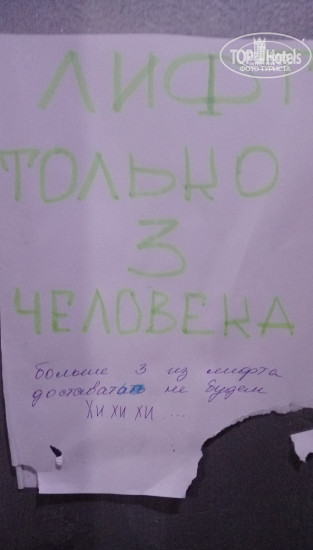 TOP Hotels
ФОТО ТУРИСТА
ЛИФТ
ТОЛЬКО
3
ЧЕЛОВЕКА
больше 3 из лифта
доставать не будем
ХИ ХИ ХИ ....